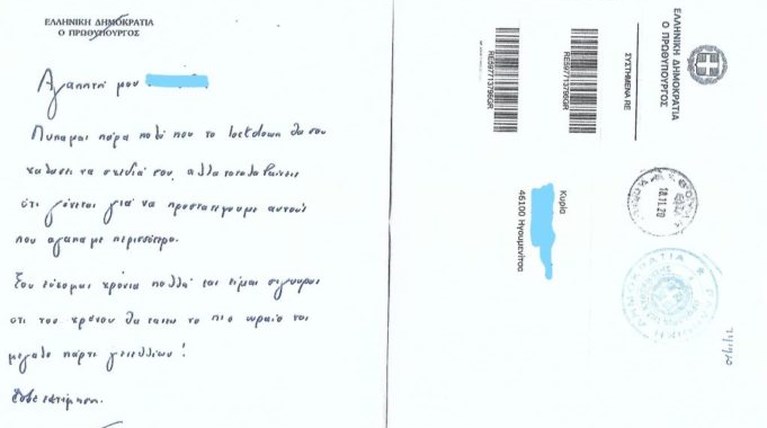 ΕΛΛΗΝΙΚΗ ΔΗΜΟΚΡΑΤΙΑ
Ο ΠΡΩΘΥΠΟΥΡΓΟΣ
Αγαπητή μου
Λυπαμαι πάρα πολύ που το lockdown θα σου
χαλασει τα σχεδιά σου, αλλα καταλαβαίνεις
ότι γίνεται για να προστατεψουμε αυτούς
που αγαπαμε περισσότερο.
Σου εύχομαι χρόνια πολλά και είμαι σιγουρος
οτι του χρόνου θα κανεις το πιο ωραίο και
μεγαλο πάρτι γενεθλίων!
εκτίμηση.
ΕΛΛΗΝΙΚΗ ΔΗΜΟΚΡΑΤΙΑ
Ο ΠΡΩΘΥΠΟΥΡΓΟΣ
ΣΥΣΤΗΜΕΝΑ RE
RE597713798GR
RE597713798GR
18.11.20
Κυρία
46100 Ηγουμενίτσα